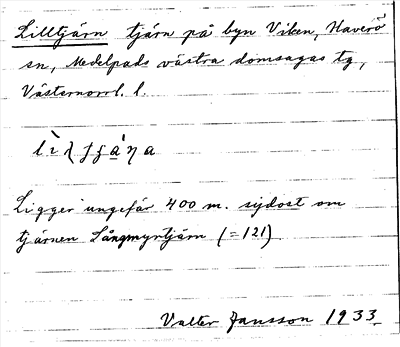 Lilltjärn tjärn på byn Viken, Haverö
sn, Medelpads västra domsagas tg,
Västernorrl. l.
Ligger ungefär 400 m. sydost om
tjärnen Långmyrtjärn (=121)
Valter Jansson 1933